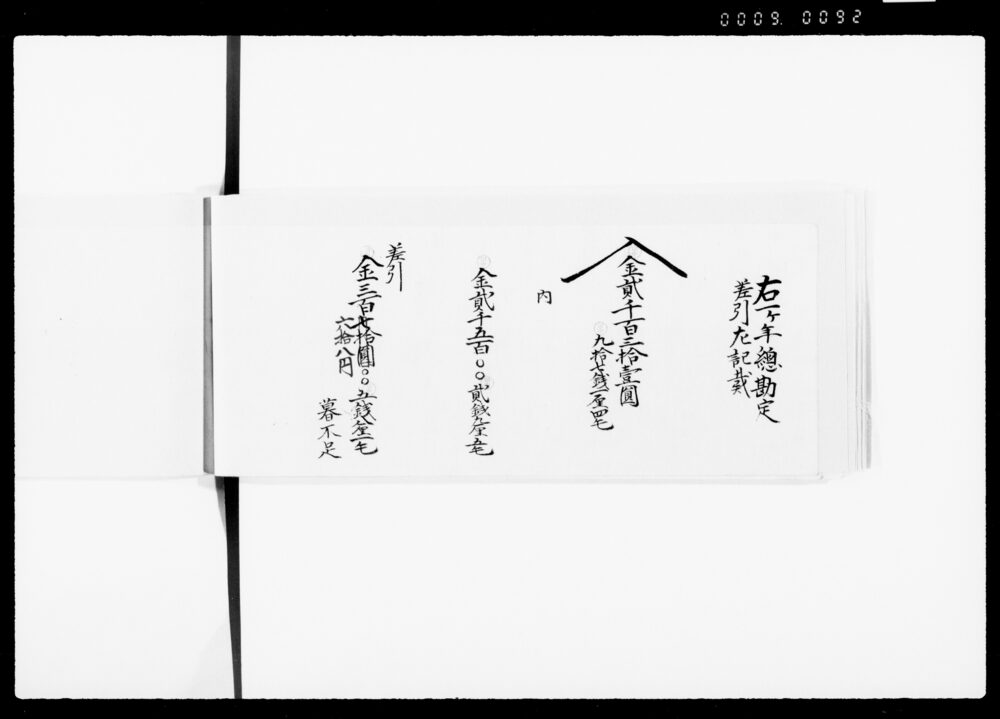 0009 0092
右一ヶ年總勘定
差引左記載
金貳千百三拾壹圓
九拾七銭一厘四毛
内
金貳千五百〇〇貳銭九厘五毛
差引
金三百
六拾八円〇〇五銭八厘一毛
暮不足